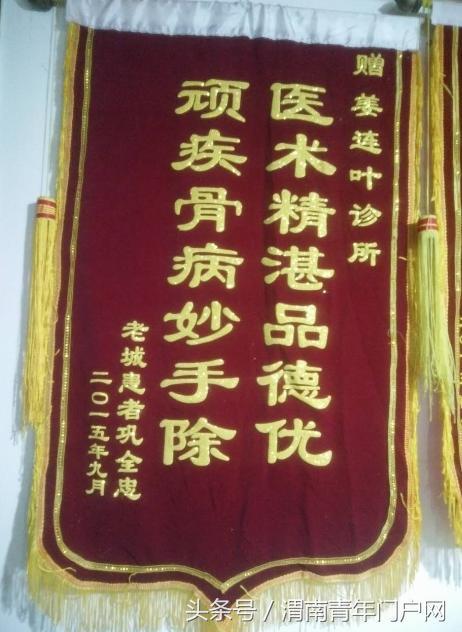 赠姜连叶诊所
医术精湛品德优
顽疾骨病妙手除
老城患者巩全忠
二〇一五年九月
头条号/渭南青年门户网